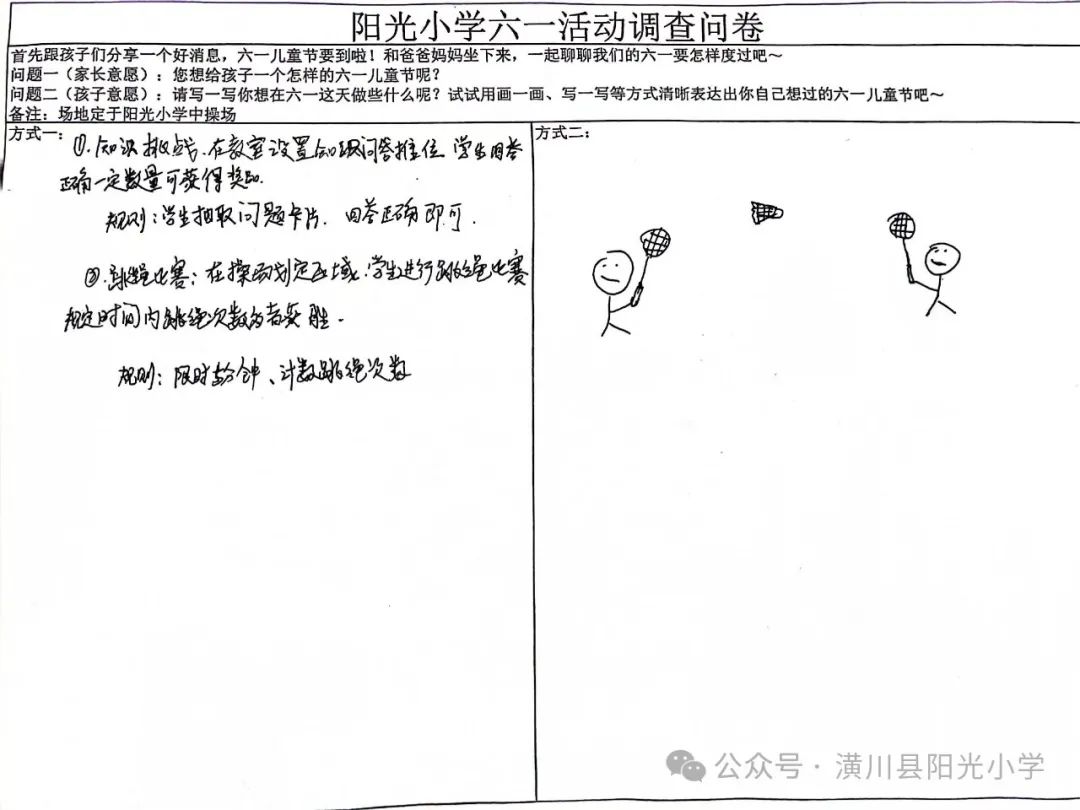 阳光小学六一活动调查问卷
首先跟孩子们分享一个好消息，六一儿童节要到啦！和爸爸妈妈坐下来，一起聊聊我们的六一要怎样度过吧～
问题一（家长意愿）：您想给孩子一个怎样的六一儿童节呢？
问题二（孩子意愿）：请写一写你想在六一这天做些什么呢？试试用画一画、写一写等方式清晰表达出你自己想过的六一儿童节吧～
备注：场地定于阳光小学中操场
方式一：
①.知识挑战.在教室设置知识问答摊位 学生回答
正确一定数量可获得奖励.
规则：学生抽取问题卡片.回答正确即可.
②.跳绳比赛：在操场划定区域.学生进行跳绳比赛
规定时间内跳绳次数多者获胜.
规则：限时 分钟、计数跳绳次数
方式二：
公众号·潢川县阳光小学